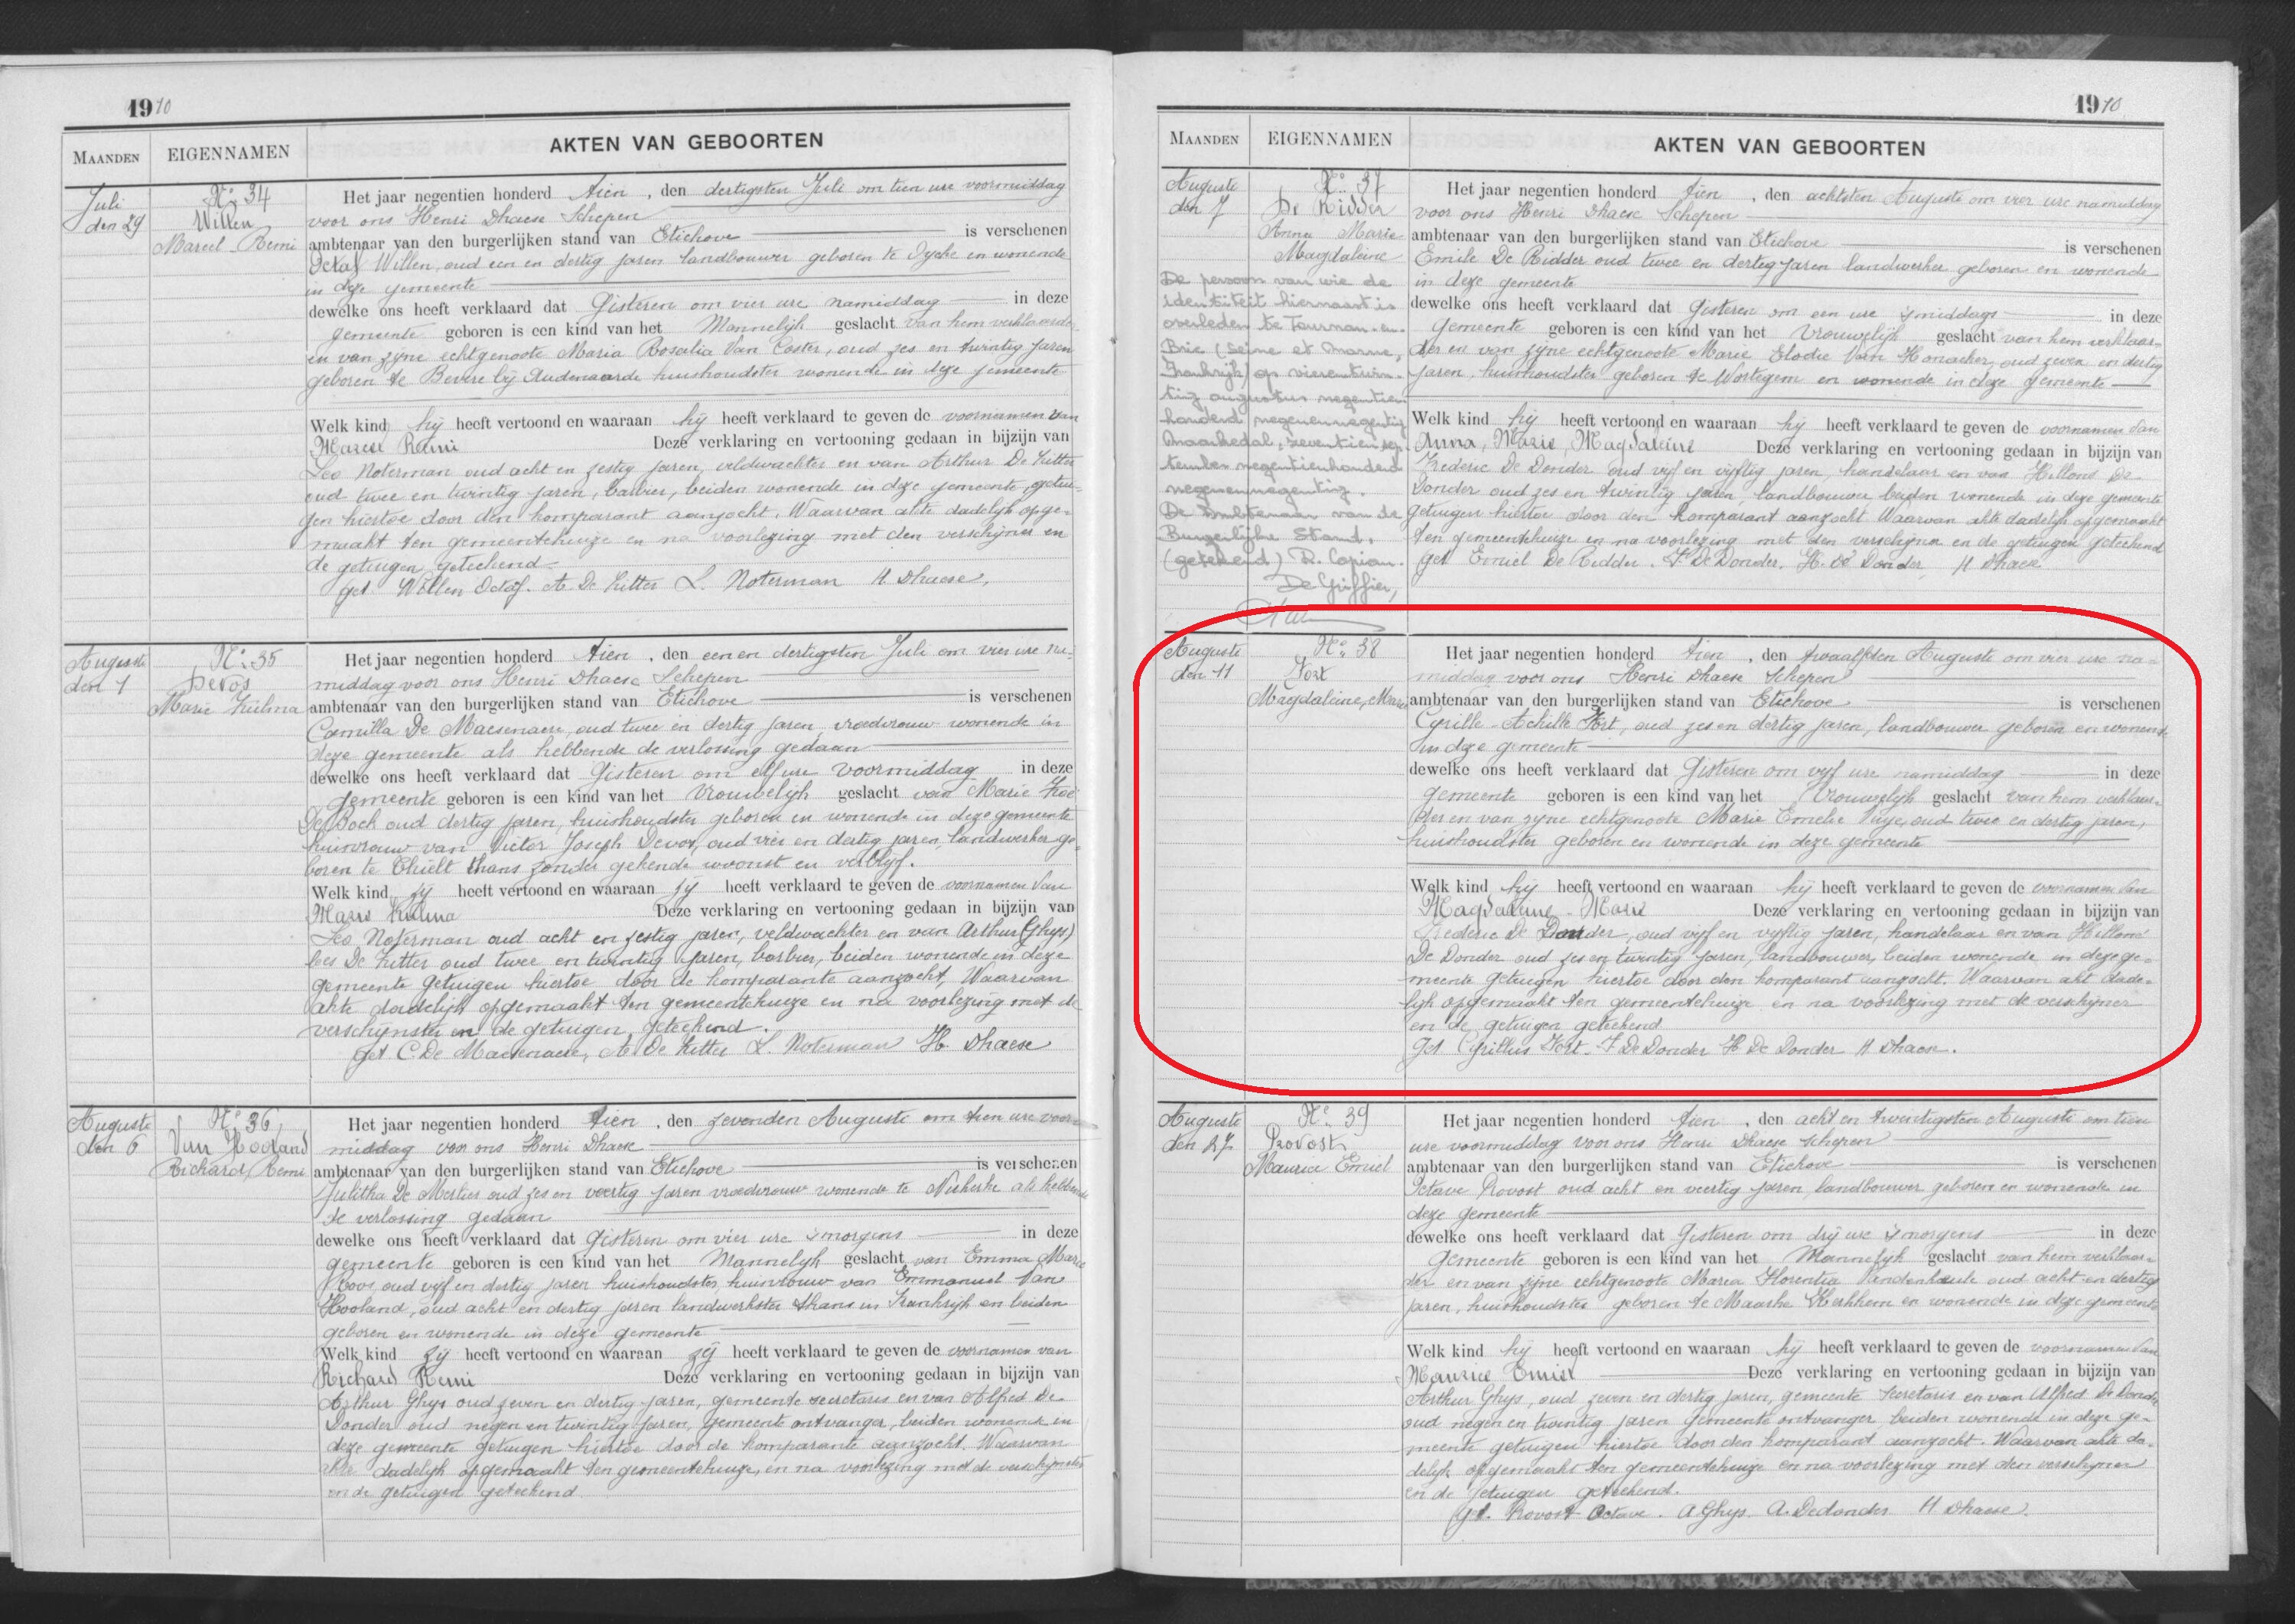 1910
MAANDEN
EIGENNAMEN
AKTEN VAN GEBOORTEN
Juli
den 29
No 34
Willen
Marcel Remi
Het jaar negentien honderd tien, den dertigsten Juli om tien ure voormiddag
voor ons Henri Dhaese Schepen
ambtenaar van den burgerlijken stand van Etichove is verschenen
Octaf Willen, oud een en dertig jaren landbouwer geboren te Oycke en wonende
in deze gemeente
dewelke ons heeft verklaard dat Gisteren om vier ure namiddag in deze
gemeente geboren is een kind van het Mannelijk geslacht van hem verklaarder
en van zijne echtgenoote Maria Rosalia Van Coster, oud zes en twintig jaren
geboren te Bevere bij Audenaarde huishoudster wonende in deze gemeente
Welk kind hij heeft vertoond en waaraan hij heeft verklaard te geven de voornamen van
Marcel Remi Deze verklaring en vertooning gedaan in bijzijn van
Leo Noterman oud acht en zestig jaren, veldwachter en van Arthur De Kitter
oud twee en twintig jaren, barbier, beiden wonende in deze gemeente, getui-
gen hiertoe door den komparant aanzocht. Waarvan akte dadelijk opge-
maakt ten gemeentehuize en na voorlezing met den verschijner en
de getuigen geteekend
get Willen Octaf. A. De Kitter L. Noterman H. Dhaese,
Auguste
den 1
No 35
Devos
Marie Zulma
Het jaar negentien honderd tien, den een en dertigsten Juli om vier ure na-
middag voor ons Henri Dhaese Schepen
ambtenaar van den burgerlijken stand van Etichove is verschenen
Camilla De Maesenaere, oud twee en dertig jaren, vroedvrouw wonende in
deze gemeente als hebbende de verlossing gedaan
dewelke ons heeft verklaard dat Gisteren om elf ure voormiddag in deze
gemeente geboren is een kind van het Vrouwelijk geslacht van Marie Zoé
De Bock oud dertig jaren, huishoudster geboren en wonende in deze gemeente
huisvrouw van Victor Joseph Devos, oud vier en dertig jaren, landwerker ge-
boren te Thielt thans zonder gekende woonst en verblijf.
Welk kind zij heeft vertoond en waaraan zij heeft verklaard te geven de voornamen van
Marie Zulma Deze verklaring en vertooning gedaan in bijzijn van
Leo Noterman oud acht en zestig jaren, veldwachter en van Arthur (Ghys)
De Kitter oud twee en twintig jaren, barbier, beiden wonende in deze
gemeente getuigen hiertoe door de komparante aanzocht, Waarvan
akte dadelijk opgemaakt ten gemeentehuize en na voorlezing met de
verschijnster en de getuigen, geteekend.
get C. De Maesenaere, A. De Kitter L. Noterman H. Dhaese
Auguste
den 6
No 36
Van Hooland
Richard, Remi
Het jaar negentien honderd tien, den zevenden Auguste om tien ure voor-
middag voor ons Henri Dhaese
ambtenaar van den burgerlijken stand van Etichove is verschenen
Julitha De Merlier oud zes en veertig jaren vroedvrouw wonende te Nukerke als hebbende
de verlossing gedaan
dewelke ons heeft verklaard dat Gisteren om vier ure smorgens in deze
gemeente geboren is een kind van het Mannelijk geslacht van Emma Marie
oud vijf en dertig jaren huishoudster, huisvrouw van Emmanuel Van
Hooland, oud acht en dertig jaren landwerkster thans in Frankrijk en beiden
geboren en wonende in deze gemeente
Welk kind zij heeft vertoond en waaraan zij heeft verklaard te geven de voornamen van
Richard Remi Deze verklaring en vertooning gedaan in bijzijn van
Arthur Ghys oud zeven en dertig jaren, gemeente secretaris en van Alfred De
Donder oud negen en twintig jaren, gemeente ontvanger, beiden wonende in
deze gemeente getuigen hiertoe door de komparante aanzocht. Waarvan
akte dadelijk opgemaakt ten gemeentehuize, en na voorlezing met de verschijnster
en de getuigen geteekend
1910
MAANDEN
EIGENNAMEN
AKTEN VAN GEBOORTEN
Auguste
den 7
No 37
De Ridder
Anna Marie
Magdaleine
De persoon van wie de
identiteit hiernaast is
overleden te Tournan-en-
Brie (Seine et Marne,
Frankrijk) op vierentwin-
tig augustus negentien
honderd negenennegentig
Maarkedal, zeventien sep-
tember negentienhonderd
negenennegentig.
De Ambtenaar van de
Burgerlijke Stand,
(getekend) R. Copian.
De Griffier,
Het jaar negentien honderd tien, den achtsten Auguste om vier ure namiddag
voor ons Henri Dhaese Schepen
ambtenaar van den burgerlijken stand van Etichove is verschenen
Emile De Ridder oud twee en dertig jaren landwerker geboren en wonende
in deze gemeente
dewelke ons heeft verklaard dat Gisteren om een ure smiddags in deze
gemeente geboren is een kind van het Vrouwelijk geslacht van hem verklaar-
der en van zijne echtgenoote Marie Elodie Van Honacker, oud zeven en dertig
jaren, huishoudster geboren te Wortegem en wonende in deze gemeente
Welk kind hij heeft vertoond en waaraan hij heeft verklaard te geven de voornamen van
Anna, Marie, Magdaleine Deze verklaring en vertooning gedaan in bijzijn van
Frederic De Donder oud vijf en vijftig jaren, handelaar en van Hillons De
Donder oud zes en twintig jaren, landbouwer beiden wonende in deze gemeente
getuigen hiertoe door den komparant aanzocht Waarvan akte dadelijk opgemaakt
ten gemeentehuize en na voorlezing met den verschijner en de getuigen geteekend
get Emiel De Ridder. F. De Donder. H. De Donder H Dhaese
Auguste
den 11
No 38
Fort
Magdaleine, Marie
Het jaar negentien honderd tien, den twaalfden Auguste om vier ure na-
middag voor ons Henri Dhaese Schepen
ambtenaar van den burgerlijken stand van Etichove is verschenen
Cyrille Achille Fort, oud zes en dertig jaren, landbouwer geboren en wonende
in deze gemeente
dewelke ons heeft verklaard dat Gisteren om vijf ure namiddag in deze
gemeente geboren is een kind van het Vrouwelijk geslacht van hem verklaar-
der en van zijne echtgenoote Marie Emelie Vuye, oud twee en dertig jaren,
huishoudster geboren en wonende in deze gemeente
Welk kind hij heeft vertoond en waaraan hij heeft verklaard te geven de voornamen van
Magdaleine Marie Deze verklaring en vertooning gedaan in bijzijn van
Frederic De Donder, oud vijf en vijftig jaren, handelaar en van Hillons
De Donder oud zes en twintig jaren, landbouwer, beiden wonende in deze ge-
meente getuigen hiertoe door den komparant aanzocht. Waarvan akt dade-
lijk opgemaakt ten gemeentehuize en na voorlezing met de verschijner
en de getuigen geteekend
Get Cyrillus Fort. F De Donder H De Donder H Dhaese.
Auguste
den 27
No 39
Provost
Maurice Emiel
Het jaar negentien honderd tien, den acht en twintigsten Auguste om tien
ure voormiddag voor ons Henri Dhaese Schepen
ambtenaar van den burgerlijken stand van Etichove is verschenen
Octave Provost oud acht en veertig jaren, landbouwer geboren en wonende in
deze gemeente
dewelke ons heeft verklaard dat Gisteren om drij ure smorgens in deze
gemeente geboren is een kind van het Mannelijk geslacht van hem verklaar-
der en van zijne echtgenoote Maria Florentia Vandenheule oud acht en dertig
jaren, huishoudster geboren te Maarke Kerkhem en wonende in deze gemeente
Welk kind hij heeft vertoond en waaraan hij heeft verklaard te geven de voornamen van
Maurice Emiel Deze verklaring en vertooning gedaan in bijzijn van
Arthur Ghys, oud zeven en dertig jaren, gemeente Secretaris en van Alfred De Donder
oud negen en twintig jaren gemeente ontvanger beiden wonende in deze ge-
meente getuigen hiertoe door den komparant aanzocht. Waarvan akte da-
delijk opgemaakt ten gemeentehuize en na voorlezing met den verschijner
en de getuigen geteekend.
get. Provost Octave. A Ghys. A. Dedonder H Dhaese.